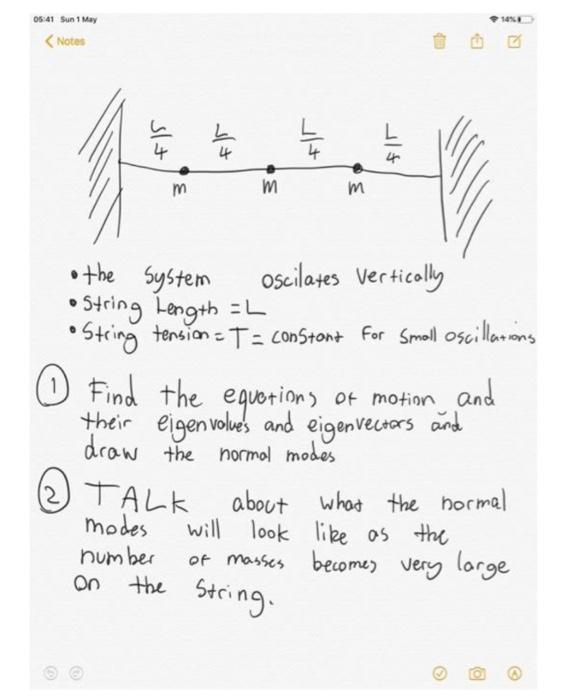 05:41 Sun 1 May 14%
Notes
L/4 L/4 L/4 L/4
m m m
• the System oscilates vertically
• String Length = L
• String tension = T = constant For Small oscillations
① Find the equations of motion and
their eigenvalues and eigenvectors and
draw the normal modes
② TALK about what the normal
modes will look like as the
number of masses becomes very large
on the String.